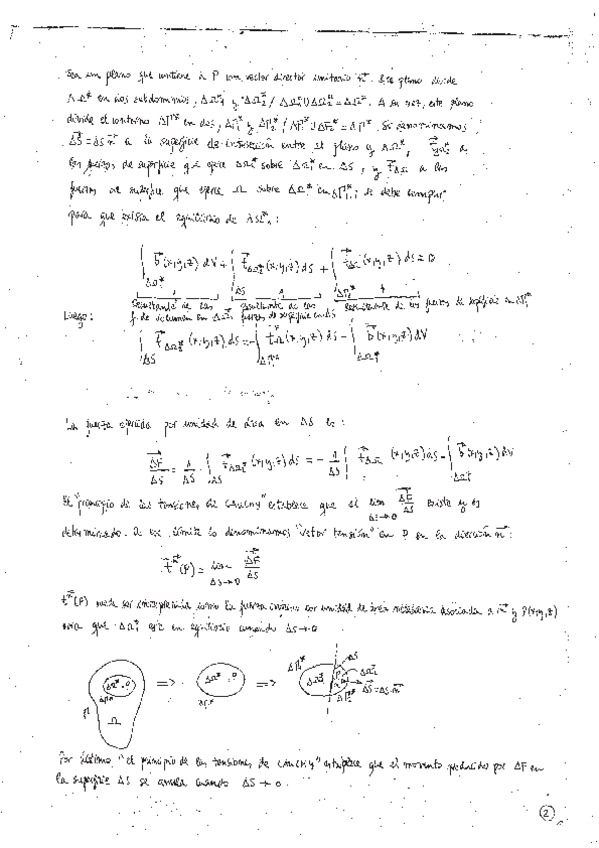 Sea un plano que contiene a P con vector director unitario n⃗. Ese plano divide
ΔΩ* en dos subdominios, ΔΩ₁* y ΔΩ₂* / ΔΩ₁* U ΔΩ₂* = ΔΩ*. A su vez, este plano
divide el contorno ΔΓ* en dos, ΔΓ₁* y ΔΓ₂* / ΔΓ₁* U ΔΓ₂* = ΔΓ*. Si denominamos
ΔS⃗ = ΔS n⃗ a la superficie de intersección entre el plano y ΔΩ*, a
las fuerzas de superficie que ejerce ΔΩ₂* sobre ΔΩ₁* en ΔS, y a las
fuerzas de superficie que ejerce Ω sobre ΔΩ* en ΔΓ₁*; se debe cumplir
para que exista el equilibrio de ΔΩ₁*:
b⃗(x,y,z) dV + (x,y,z) ds + (x,y,z) ds = 0
Resultante de las resultante de las resultante de las fuerzas de superficie en ΔΓ₁*
Luego: f. de volumen en ΔΩ₁* fuerzas de superficie en ΔS
(x,y,z) ds = - (x,y,z) ds - b⃗(x,y,z) dV
La fuerza ejercida por unidad de área en ΔS es:
ΔF⃗/ΔS = 1/ΔS (x,y,z) ds = - 1/ΔS (x,y,z) ds - b⃗(x,y,z) dV
El "principio de las tensiones de CAUCHY" establece que el lim ΔS→0 ΔF⃗/ΔS existe y es
determinado. A ese límite lo denominamos "vector tensión" en P en la dirección n⃗:
(P) = lim ΔS→0 ΔF⃗/ΔS
(P) puede ser interpretada como la fuerza por unidad de área asociada a n⃗ y P(x,y,z)
para que ΔΩ₁* esté en equilibrio cuando ΔS→0
ΔΩ* .P ΔΓ* Γ Ω => ΔΩ* .P ΔΓ* => ΔΓ₁* ΔΩ₁* ΔS P ΔΩ₂* ΔS⃗=ΔS·n⃗ ΔΓ₂*
Por último "el principio de las tensiones de CAUCHY" establece que el momento producido por ΔF en
la superficie ΔS se anula cuando ΔS → 0.
2